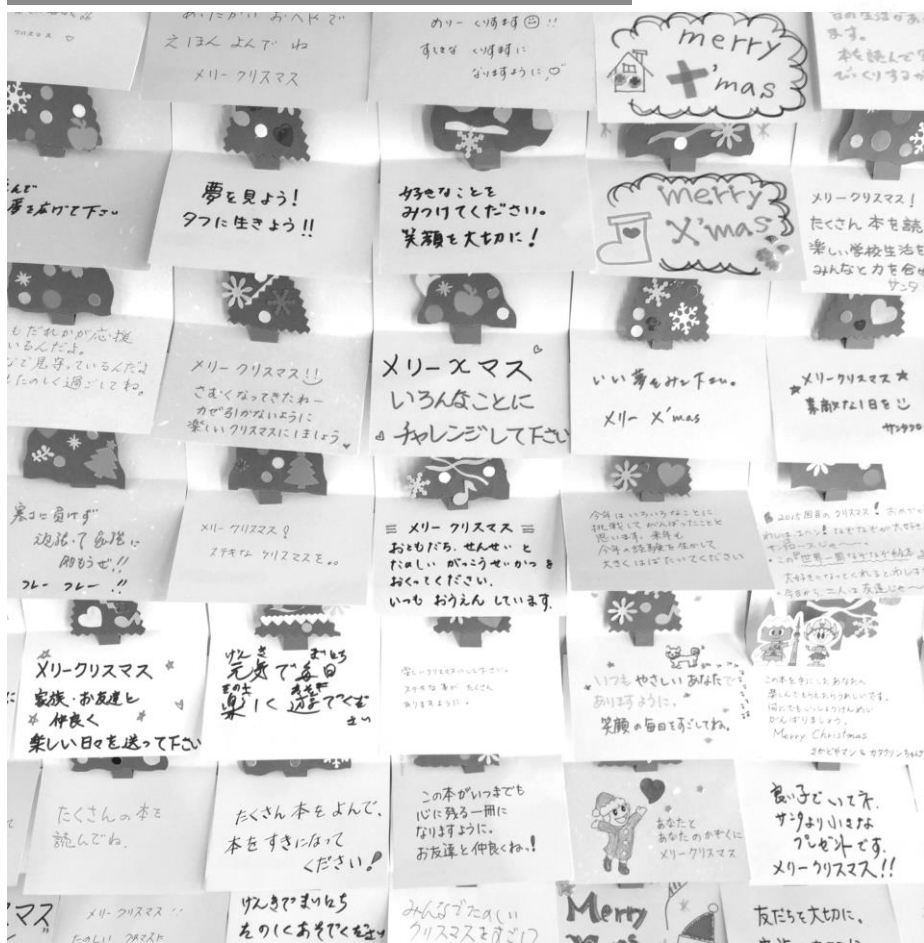 えほん よんで ね
メリークリスマス
めりー くりすます !!
すてきな くりすますに
なりますように♡
merry
X'mas
ます。
本を読んで
夢を広げて下さい
夢を見よう!
タフに生きよう!!
好きなことを
みつけてください。
笑顔を大切に!
merry
X'mas
メリークリスマス!
たくさん 本を読
楽しい学校生活を
みんなと力を合せ
サンタ
もだれかが応援
いるんだよ。
で見守っているんだよ
たのしく過ごしてね。
メリー クリスマス!!
さむくなってきたねー
カゼ引かないように
楽しいクリスマスにしましょう
メリーXマス
いろんなことに
チャレンジして下さい
いい夢をみて下さい。
メリー X'mas
★メリークリスマス★
素敵な1日を
サンタクロ
寒さに負けず
頑張って勉強に
励もうぜ!!
フレー フレー !!
メリー クリスマス!
ステキな クリスマスを。。
メリー クリスマス
おともだち、せんせい と
たのしい がっこうせいかつ を
おくってください。
いつも おうえん しています。
今年はいろいろなことに
挑戦してがんばったことと
思います。来年も
今年の経験を生かして
大きくはばたいてください
2015回目のクリスマス!
メリークリスマス
家族・お友達と
仲良く
楽しい日々を送って下さい
げんき まいにち
元気で毎日
たのしく あそんで
楽しく 遊んでくだ
さい
楽しいクリスマスにして下さい
ステキな事が たくさん
ありますように。
いつも やさしい あなたで
ありますように。
笑顔の毎日をすごしてね。
この本を手にしたあなたへ
楽しんでもらえたらうれしいです。
何にでもいっしょうけんめい
がんばりましょう。
Merry Christmas
たくさんの本を
読んでね。
たくさん 本をよんで、
本をすきになって
ください!
この本がいつまでも
心に残る一冊に
なりますように。
お友達と仲良くね!
あなたと
あなたのかぞくに
メリークリスマス
良い子でいてネ。
サンタより小さな
プレゼントです。
メリークリスマス!!
マス
メリー クリスマス!!
たのしい クリスマスに
げんきでまいにち
たのしくあそんでください
みんなでたのしい
クリスマスをすごし
Merry
友だちを大切に、